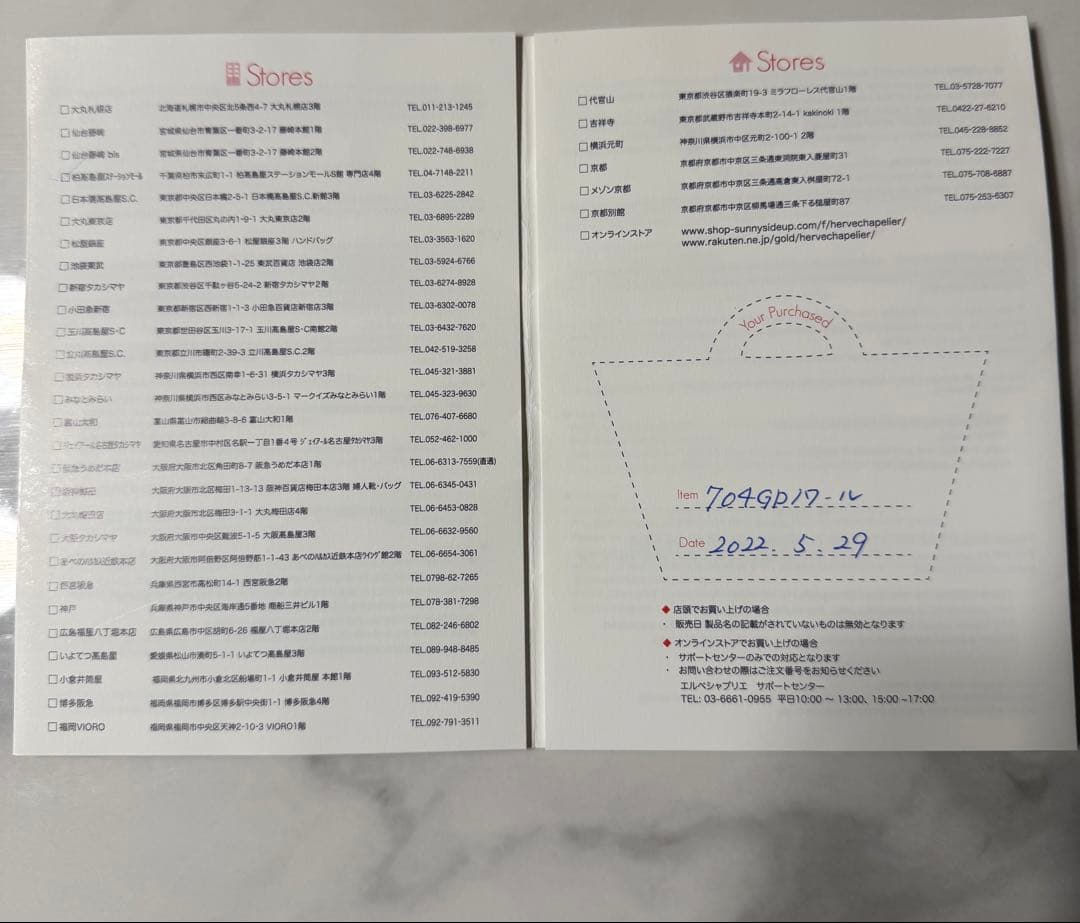 Stores
□大丸札幌店 北海道札幌市中央区北5条西4-7 大丸札幌店3階 TEL.011-213-1245
□仙台藤崎 宮城県仙台市青葉区一番町3-2-17 藤崎本館1階 TEL.022-398-6977
□仙台藤崎 bis 宮城県仙台市青葉区一番町3-2-17 藤崎本館2階 TEL.022-748-6938
□柏高島屋ステーションモール 千葉県柏市末広町1-1 柏高島屋ステーションモールS館 専門店4階 TEL.04-7148-2211
□日本橋高島屋S.C. 東京都中央区日本橋2-5-1 日本橋高島屋S.C.新館3階 TEL.03-6225-2842
□大丸東京店 東京都千代田区丸の内1-9-1 大丸東京店2階 TEL.03-6895-2289
□松屋銀座 東京都中央区銀座3-6-1 松屋銀座3階 ハンドバッグ TEL.03-3563-1620
□池袋東武 東京都豊島区西池袋1-1-25 東武百貨店 池袋店2階 TEL.03-5924-6766
□新宿タカシマヤ 東京都渋谷区千駄ヶ谷5-24-2 新宿タカシマヤ2階 TEL.03-6274-8928
□小田急新宿 東京都新宿区西新宿1-1-3 小田急百貨店新宿店3階 TEL.03-6302-0078
□玉川高島屋S·C 東京都世田谷区玉川3-17-1 玉川高島屋S·C南館2階 TEL.03-6432-7620
□立川高島屋S.C. 東京都立川市曙町2-39-3 立川高島屋S.C.2階 TEL.042-519-3258
□横浜タカシマヤ 神奈川県横浜市西区南幸1-6-31 横浜タカシマヤ3階 TEL.045-321-3881
□みなとみらい 神奈川県横浜市西区みなとみらい3-5-1 マークイズみなとみらい1階 TEL.045-323-9630
□富山大和 富山県富山市総曲輪3-8-6 富山大和1階 TEL.076-407-6680
□ジェイアール名古屋タカシマヤ 愛知県名古屋市中村区名駅一丁目1番4号 ジェイアール名古屋タカシマヤ3階 TEL.052-462-1000
□阪急うめだ本店 大阪府大阪市北区角田町8-7 阪急うめだ本店1階 TEL.06-6313-7559(直通)
□阪神梅田 大阪府大阪市北区梅田1-13-13 阪神百貨店梅田本店3階 婦人靴・バッグ TEL.06-6345-0431
□大丸梅田店 大阪府大阪市北区梅田3-1-1 大丸梅田店4階 TEL.06-6453-0828
□大阪タカシマヤ 大阪府大阪市中央区難波5-1-5 大阪高島屋3階 TEL.06-6632-9560
□あべのハルカス近鉄本店 大阪府大阪市阿倍野区阿倍野筋1-1-43 あべのハルカス近鉄本店ウイング館2階 TEL.06-6654-3061
□西宮阪急 兵庫県西宮市高松町14-1 西宮阪急2階 TEL.0798-62-7265
□神戸 兵庫県神戸市中央区海岸通5番地 商船三井ビル1階 TEL.078-381-7298
□広島福屋八丁堀本店 広島県広島市中区胡町6-26 福屋八丁堀本店2階 TEL.082-246-6802
□いよてつ高島屋 愛媛県松山市湊町5-1-1 いよてつ高島屋3階 TEL.089-948-8485
□小倉井筒屋 福岡県北九州市小倉北区船場町1-1 小倉井筒屋 本館1階 TEL.093-512-5830
□博多阪急 福岡県福岡市博多区博多駅中央街1-1 博多阪急4階 TEL.092-419-5390
□福岡VIORO 福岡県福岡市中央区天神2-10-3 VIORO1階 TEL.092-791-3511
Stores
□代官山 東京都渋谷区猿楽町19-3 ミラフローレス代官山1階 TEL.03-5728-7077
□吉祥寺 東京都武蔵野市吉祥寺本町2-14-1 kakinoki 1階 TEL.0422-27-6210
□横浜元町 神奈川県横浜市中区元町2-100-1 2階 TEL.045-228-8852
□京都 京都府京都市中京区三条通東洞院東入菱屋町31 TEL.075-222-7227
□メゾン京都 京都府京都市中京区三条通高倉東入桝屋町72-1 TEL.075-708-6887
□京都別館 京都府京都市中京区柳馬場通三条下る槌屋町87 TEL.075-253-6307
□オンラインストア www.shop-sunnysideup.com/f/hervechapelier/
www.rakuten.ne.jp/gold/hervechapelier/
Your Purchased
Item 704GPノワール
Date 2022. 5. 29
◆店頭でお買い上げの場合
・ 販売日 製品名の記載がされていないものは無効となります
◆オンラインストアでお買い上げの場合
・ サポートセンターのみでの対応となります
・ お問い合わせの際はご注文番号をお知らせください
エルベシャプリエ サポートセンター
TEL: 03-6661-0955 平日10:00 〜 13:00、15:00 ~17:00